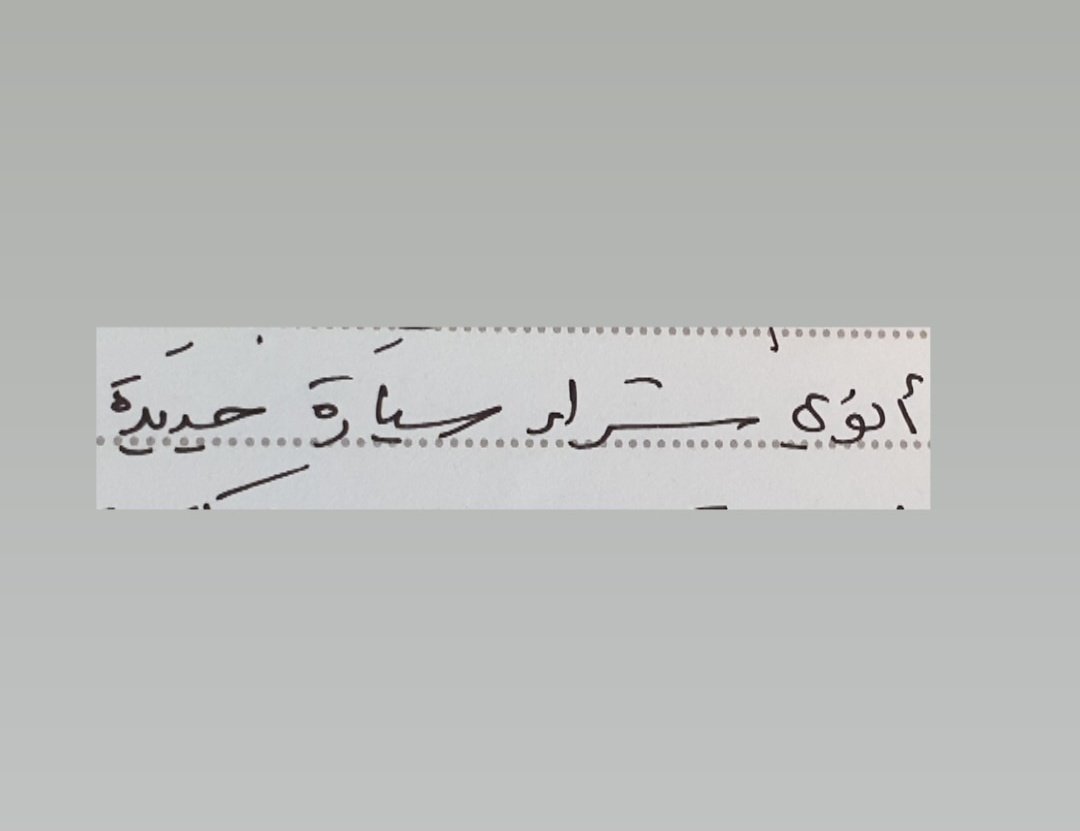 أنوي شراء سيارة جديدة